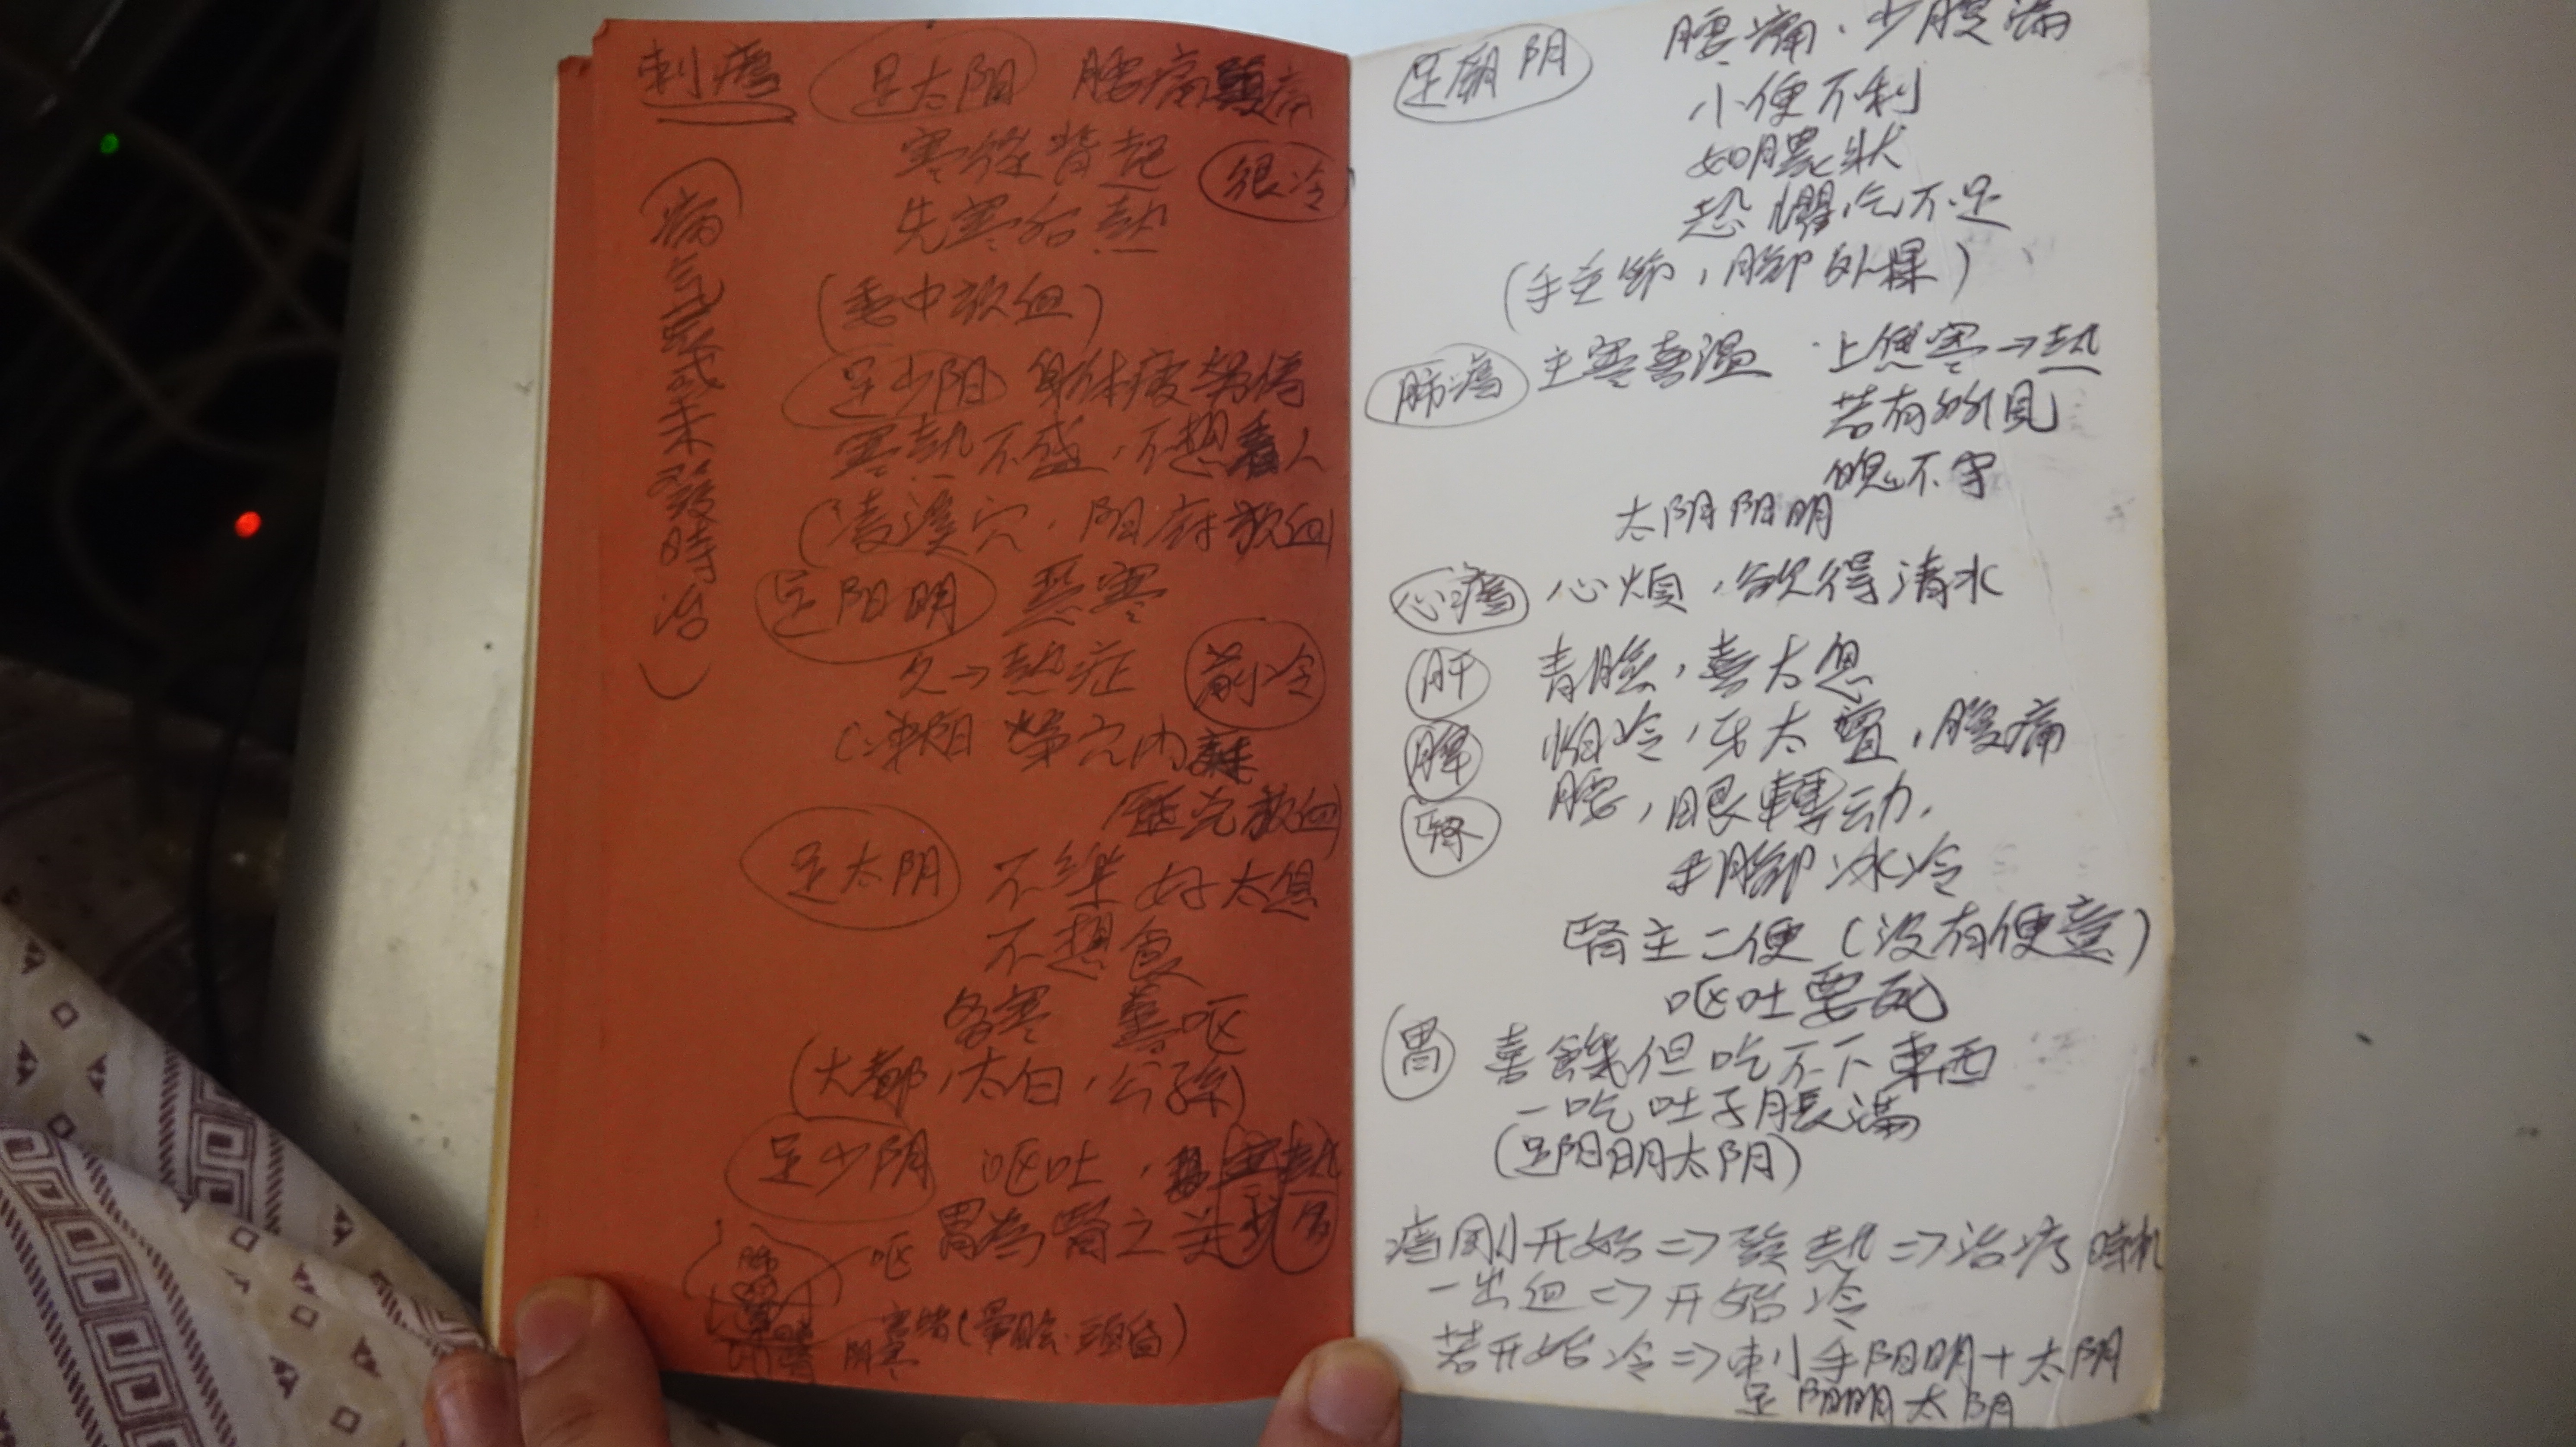 刺瘧
(病氣或未發時治)
足太阳 腰痛頭痛
寒從背起 很冷
先寒后熱
(委中放血)
足少阳 身体疲勞倦
寒熱不盛,不想看人
(俠溪穴,阳府放血)
足阳明 惡寒
久→熱症 前小冷
榮穴內
放血)
足太阴 不樂 好太息
不想食
多寒 善呕
(大都,太白,公孫)
足少阴 呕吐,
胃為腎之关
呕
寒
足厥阴 腰痛.少腹滿
小便不利
如膿狀
恐懼,气不足
(手主節,脚外踝)
肺瘧 主寒喜温 上焦寒→熱
若有所見
魄不守
太阴阳明
心瘧 心煩,欲得清水
肝 青臉,喜太息
脾 怕冷,牙太響,腹痛
腎 腰,眼轉动.
手脚冰冷
腎主二便(没有便意)
呕吐要死
胃 喜餓但吃不下東西
一吃吐子脹滿
(足阳明太阴)
瘧剛开始=>發熱=>治疗時机
一出血=>开始冷
若开始冷=>刺手阳明+太阴
足阳明太阴